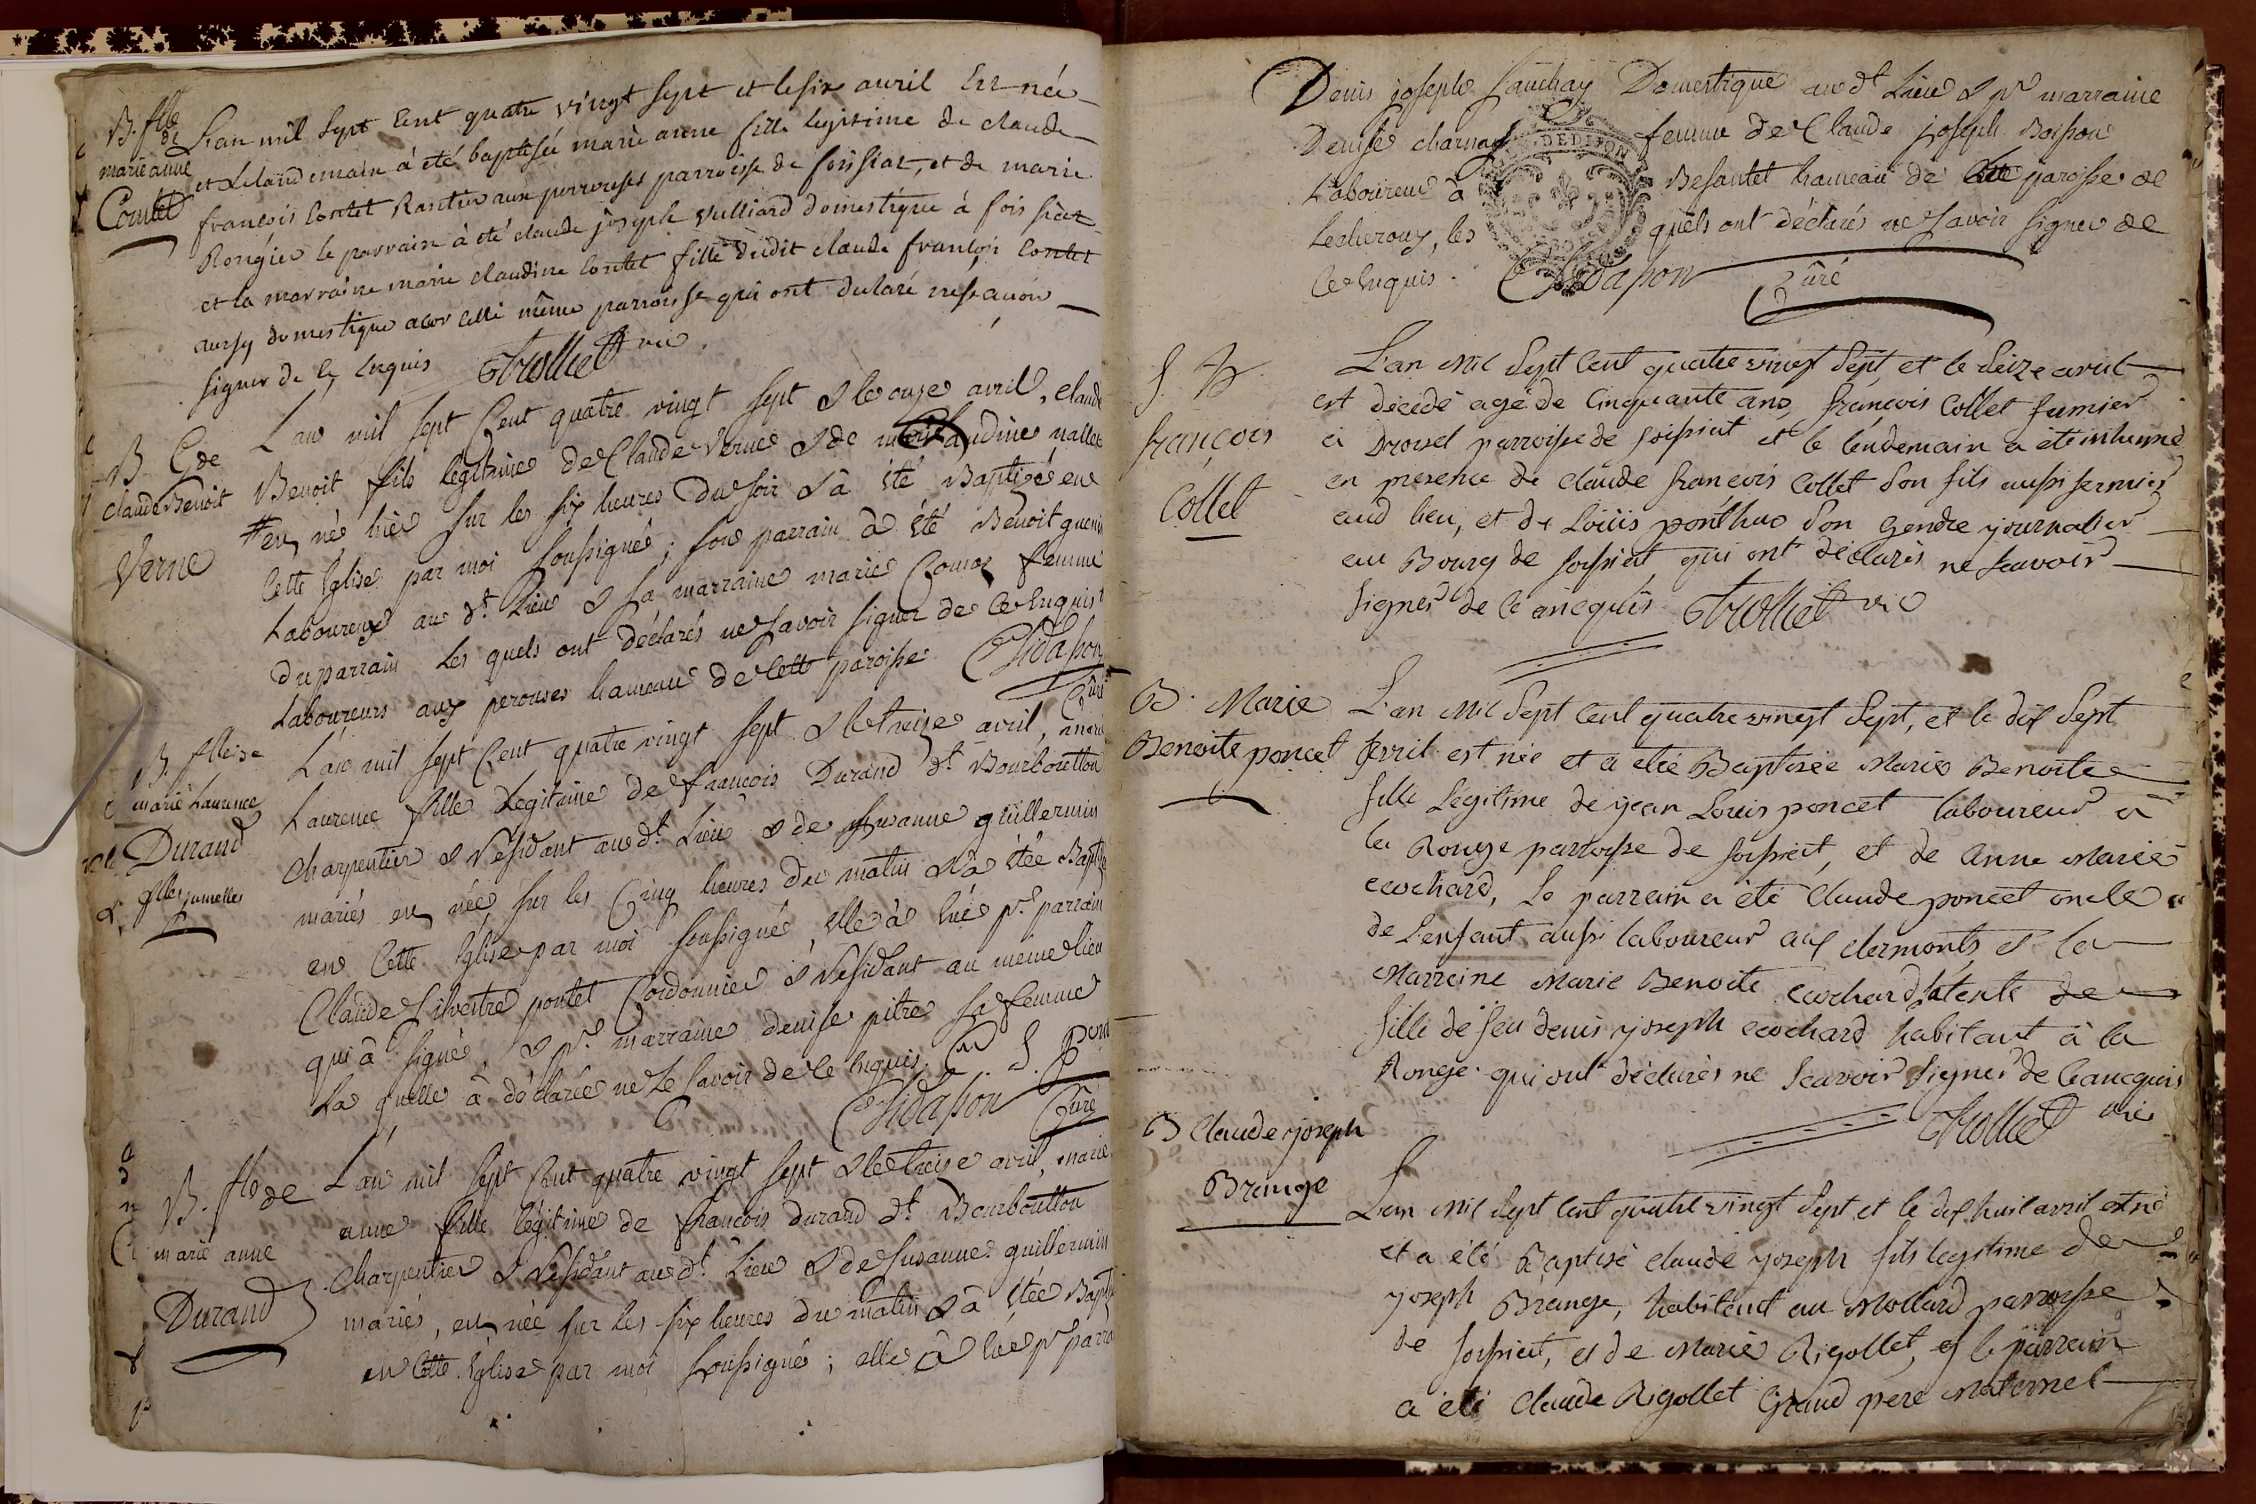 B. flle de
marie anne
Contet
L'an mil sept cent quatre vingt sept et le six avril Est née
et Le landemain à eté baptisée marie anne fille legitime de claude
francois Contet Rantier aux perrouses parroisse de foissiat, et de marie
Rongier le parrain à eté claude joseph vulliard domestique à foissiat
et la marraine marie claudine Contet fille dudit claude francois Contet
aussy domestique acor cette même parroisse qui ont declaré ne sçavoir
signer de ce enquis Trolliet vic
B. G de
claude Benoit
Verne
L'an mil sept Cent quatre vingt sept & le onze avril, claude
Benoit fils légitime de Claude Verne & de claudine nallet
est né hier sur les six heures du soir & à été Baptisé en
Cette Eglise par moi soussigné; son parrain à été Benoit guerin
Laboureur au dt. Lieu & sa marraine marie Comas femme
du parrain Les quels ont déclarés ne savoir signer de ce Enquis
Laboureurs aux perouses hameau de cette paroisse. Chidason
Curé
B. flle de
marie Laurence
Durand
flles jumelles
L'an mil sept Cent quatre vingt sept & le treize avril, marie
Laurence fille Legitime de françois Durand dt. Bourboutton
Charpentier & résidant au dt. Lieu & de susanne guillermin
mariés est née sur les Cinq heures du matin & à étée Baptisée
en Cette Eglise par moi soussigné, elle à Eüe pr. parrain
Claude Silvestre pontet Cordonnier & résidant au même lieu
qui à signé, & pr. marraine denise pitre sa femme
La quelle à déclarée ne Le savoir de ce enquis.
Chidason Curé
B. flle de
marie anne
Durand
L'an mil sept Cent quatre vingt sept & le treize avril, marie
anne fille légitime de françois durand dt. Bourboutton
Charpentier & résidant au dt. Lieu & de susanne guillermin
mariés, est née sur les six heures du matin & à étée Baptisée
en Cette Eglise par moi soussigné; elle à Eüe pr parrain
Denis joseph sauchay Domestique au dt Lieu & pr marraine
Denise charnay femme de Claude joseph Boisson
Laboureur à Besantet hameau de cette paroisse de
Lecheroux, les quels ont déclarés ne savoir signer de
Ce Enquis. Chidason Curé
DE DIJON
S. h
françois
Collet
L'an mil sept cent quatre vingt sept, et le seize avril
est décédé agé de cinquante ans, françois Collet fermier
à Drouel parroisse de foissiat et le lendemain a été inhumé
en presence de claude françois Collet son fils aussi fermier
aud lieu, et de Loüis ponthus son gendre journalier
au Bourg de foissiat, qui ont déclarés ne scavoir
signer de ce ancquis Trolliet vic
B. Marie
Benoite poncet
L'an mil sept cent quatre vingt sept, et le dix sept
avril est née et a été Baptisée Marie Benoite
fille Légitime de jean Louis poncet laboureur à
la Rouge parroisse de foissiat, et de Anne Marie
ecochard, Le parrain a été Claude poncet oncle
de L'enfant aussi laboureur aux clermonts, et la
Marraine Marie Benoite ecochard tante de
fille de feu denis joseph ecochard habitant à la
Rouge. qui ont déclarés ne scavoir signer de ce ancquis
Trolliet vic
B Claude joseph
Brange
L'an mil sept cent quatre vingt sept, et le dix huit avril est né
et a été Baptisé claude joseph fils legitime de
joseph Brange, habitant au Mollard parroisse
de foissiat, et de Marie Rigollet, et le parrain
a été Claude Rigollet Grand pere maternel